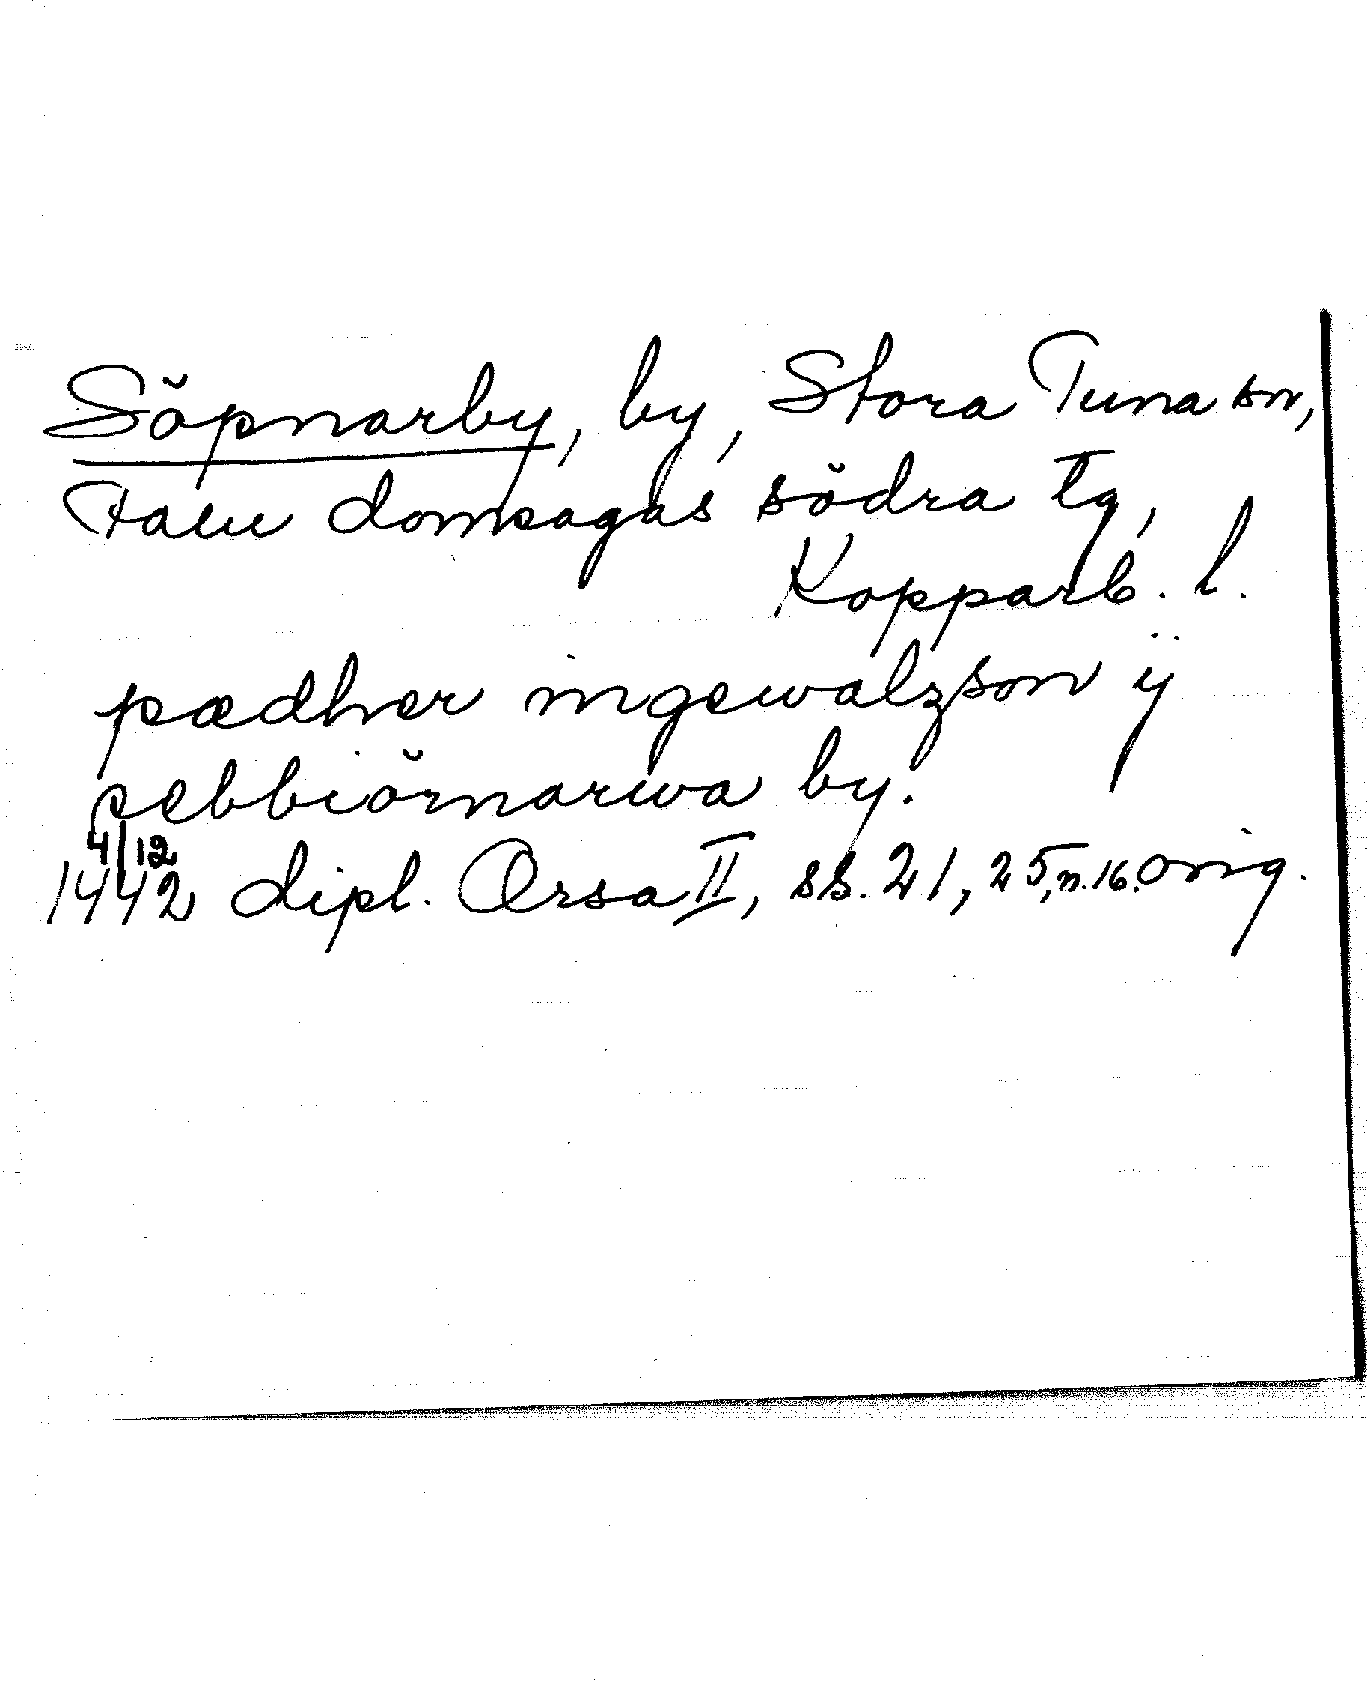 Söpnarby, by, Stora Tuna sn,
Falu domsagas södra tg,
Kopparb. l.
pædher ingewalzson ÿ
sebbiörnarwa by.
4/12
1442 dipl. Orsa II, ss. 21, 25, n. 16. orig.